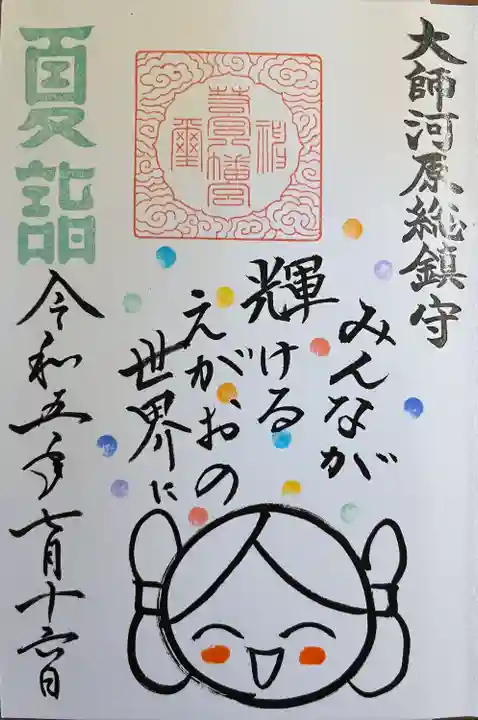 大師河原総鎮守
みんなが
輝ける
えがおの
世界に
夏詣
令和五年七月十六日